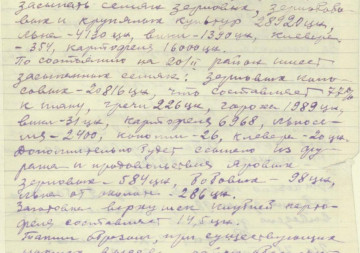 засыпать семян зерновых, зернобобо
вых и крупяных культур 28920 цн,
льна - 4130 цн, вики - 1340 цн, клевера
- 354, картофеля 16000 цн.
По состоянию на 20/II район имеет
засыпанных семян: зерновых коло
совых - 20816 цн, что составляет 77%
к плану, гречи 226 цн, гороха 1989 цн,
вики - 31 цн, картофеля 6968, льносе-
мя - 2400, конопли - 26, клевера - 20 цн.
Дополнительно будет засыпано из фу
ража и продовольствия яровых
зерновых - 584 цн, бобовых - 98 цн,
льна от 286 цн.
Заготовка верхушек клубней карто-
феля составляет 14,5 цн.
Таким образом, при существующих